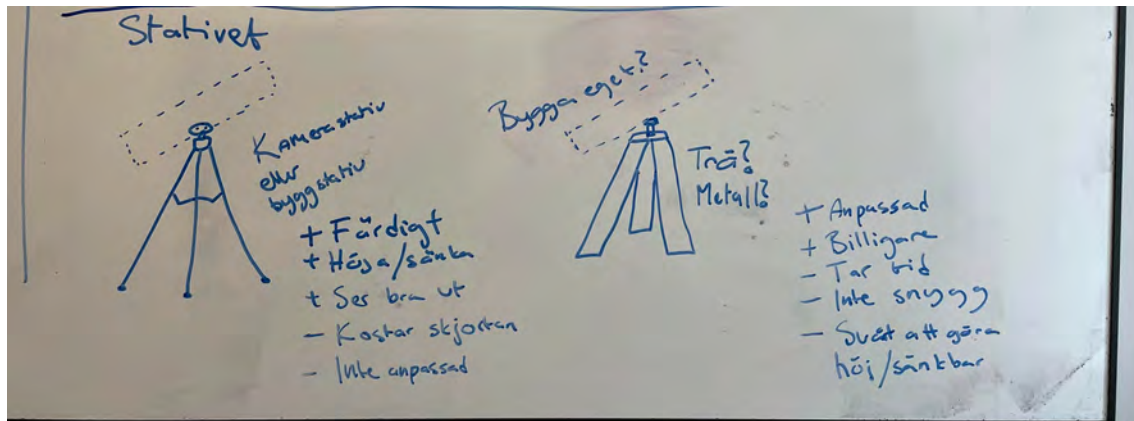 Stativet
Kamerastativ
eller
byggstativ
+ Färdigt
+ Höja/sänka
+ Ser bra ut
- Kostar skjortan
- Inte anpassad
Bygga eget?
Trä?
Metall?
+ Anpassad
+ Billigare
- Tar tid
- Inte snygg
- Svårt att göra
höj/sänkbar